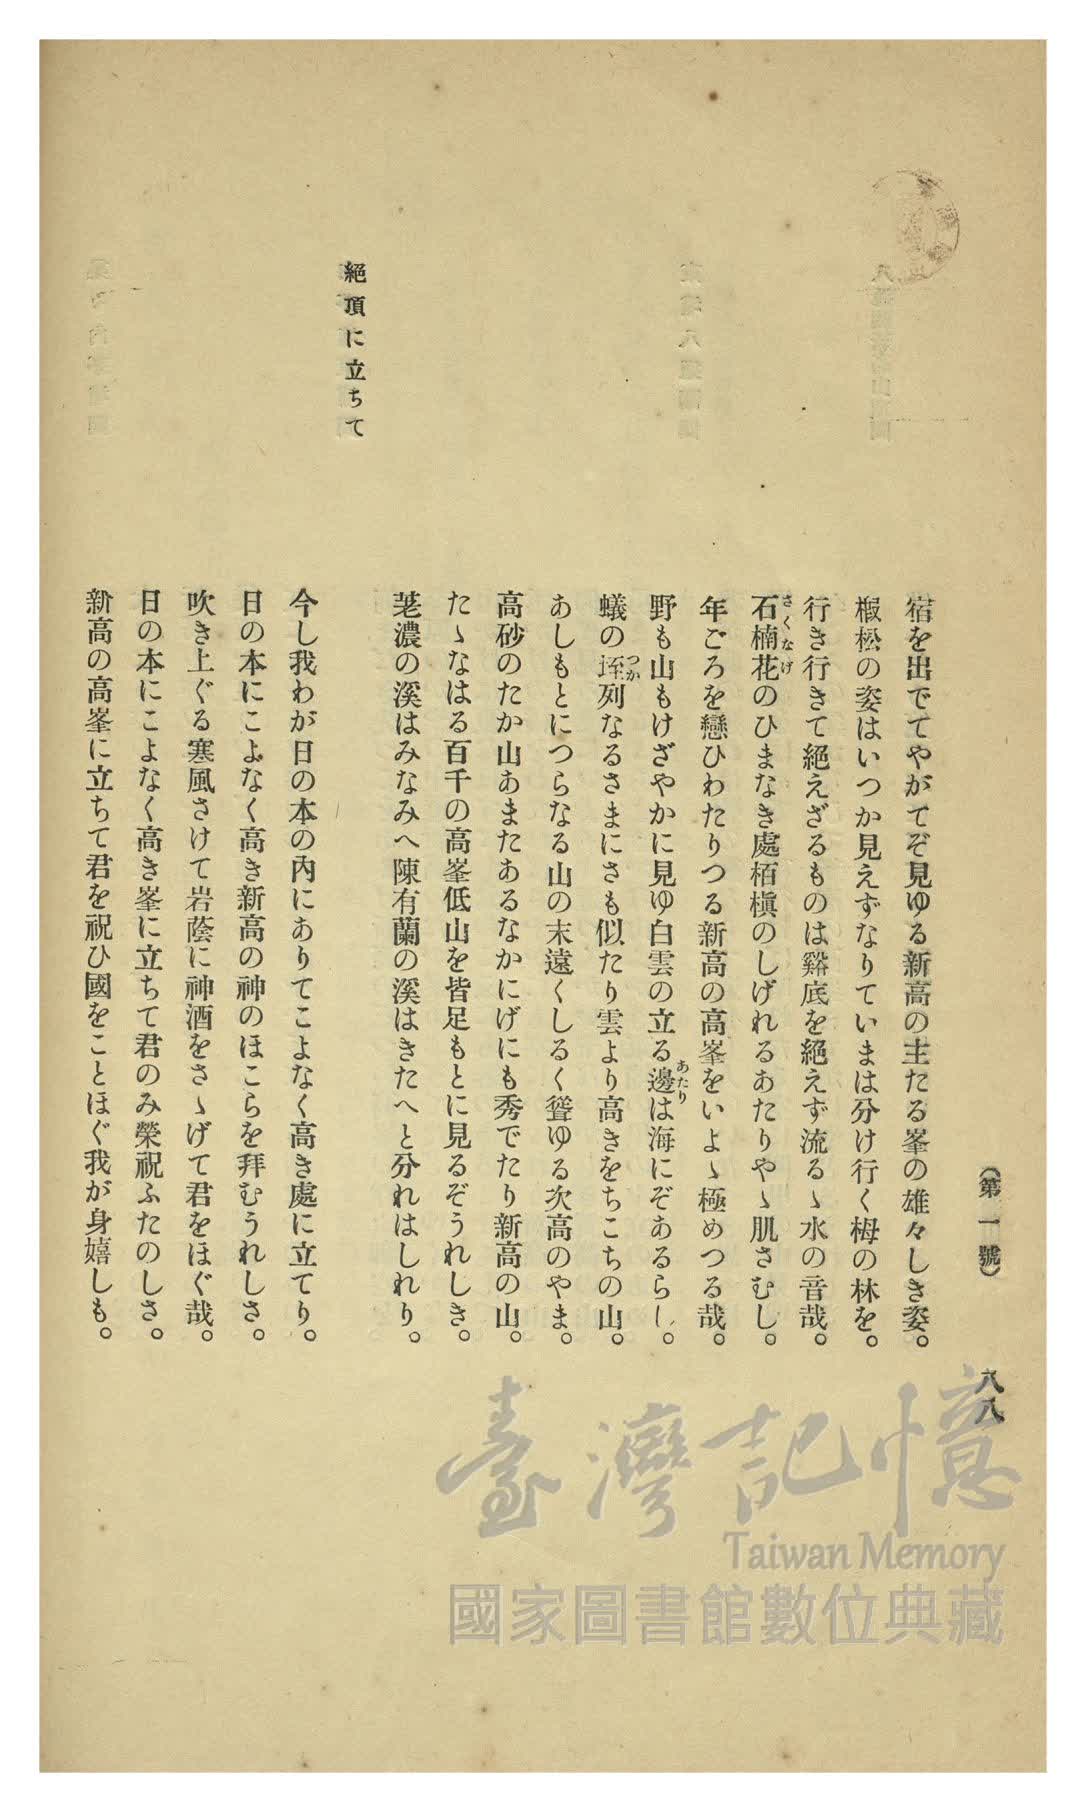 (第一號)
八八
宿を出でてやがてぞ見ゆる新高の主たる峯の雄々しき姿。
椴松の姿はいつか見えずなりていまは分け行く栂の林を。
行き行きて絶えざるものは谿底を絶えず流るゝ水の音哉。
石楠花のひまなき處栢槇のしげれるあたりやゝ肌さむし。
さくなげ
年ごろを戀ひわたりつる新高の高峯をいよゝ極めつる哉。
野も山もけざやかに見ゆ白雲の立る邊は海にぞあるらし。
あたり
蟻の垤列なるさまにさも似たり雲より高きをちこちの山。
つか
あしもとにつらなる山の末遠くしるく聳ゆる次高のやま。
高砂のたか山あまたあるなかにげにも秀でたり新高の山。
たゝなはる百千の高峯低山を皆足もとに見るぞうれしき。
荖濃の溪はみなみへ陳有蘭の溪はきたへと分れはしれり。
絕頂に立ちて
今し我わが日の本の內にありてこよなく高き處に立てり。
日の本にこよなく高き新高の神のほこらを拜むうれしさ。
吹き上ぐる寒風さけて岩蔭に神酒をさゝげて君をほぐ哉。
日の本にこよなく高き峯に立ちて君のみ榮祝ふたのしさ。
新高の高峯に立ちて君を祝ひ國をことほぐ我が身嬉しも。
臺灣記憶
Taiwan Memory
國家圖書館數位典藏